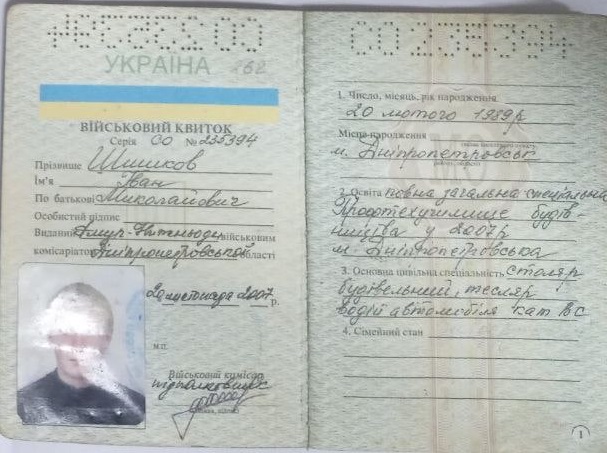 УКРАЇНА 262
ВІЙСЬКОВИЙ КВИТОК
Серія СО № 235394
Прізвище Шишков
Ім'я Іван
По батькові Миколайович
Особистий підпис
Виданий Амур-Нижньодн. військовим
комісаріатом Дніпропетровської області
20 листопада 2007 р.
М.П.
Військовий комісар
підполковник
СО 235394
1. Число, місяць, рік народження
20 лютого 1989р
Місце народження
м. Дніпропетровськ
2. Освіта повна загальна спеціальна
Профтехучилище будів-
ництва у 2007р
м. Дніпропетровська
3. Основна цивільна спеціальність столяр
будівельний, тесляр
водій автомобіля кат ВС
4. Сімейний стан
1